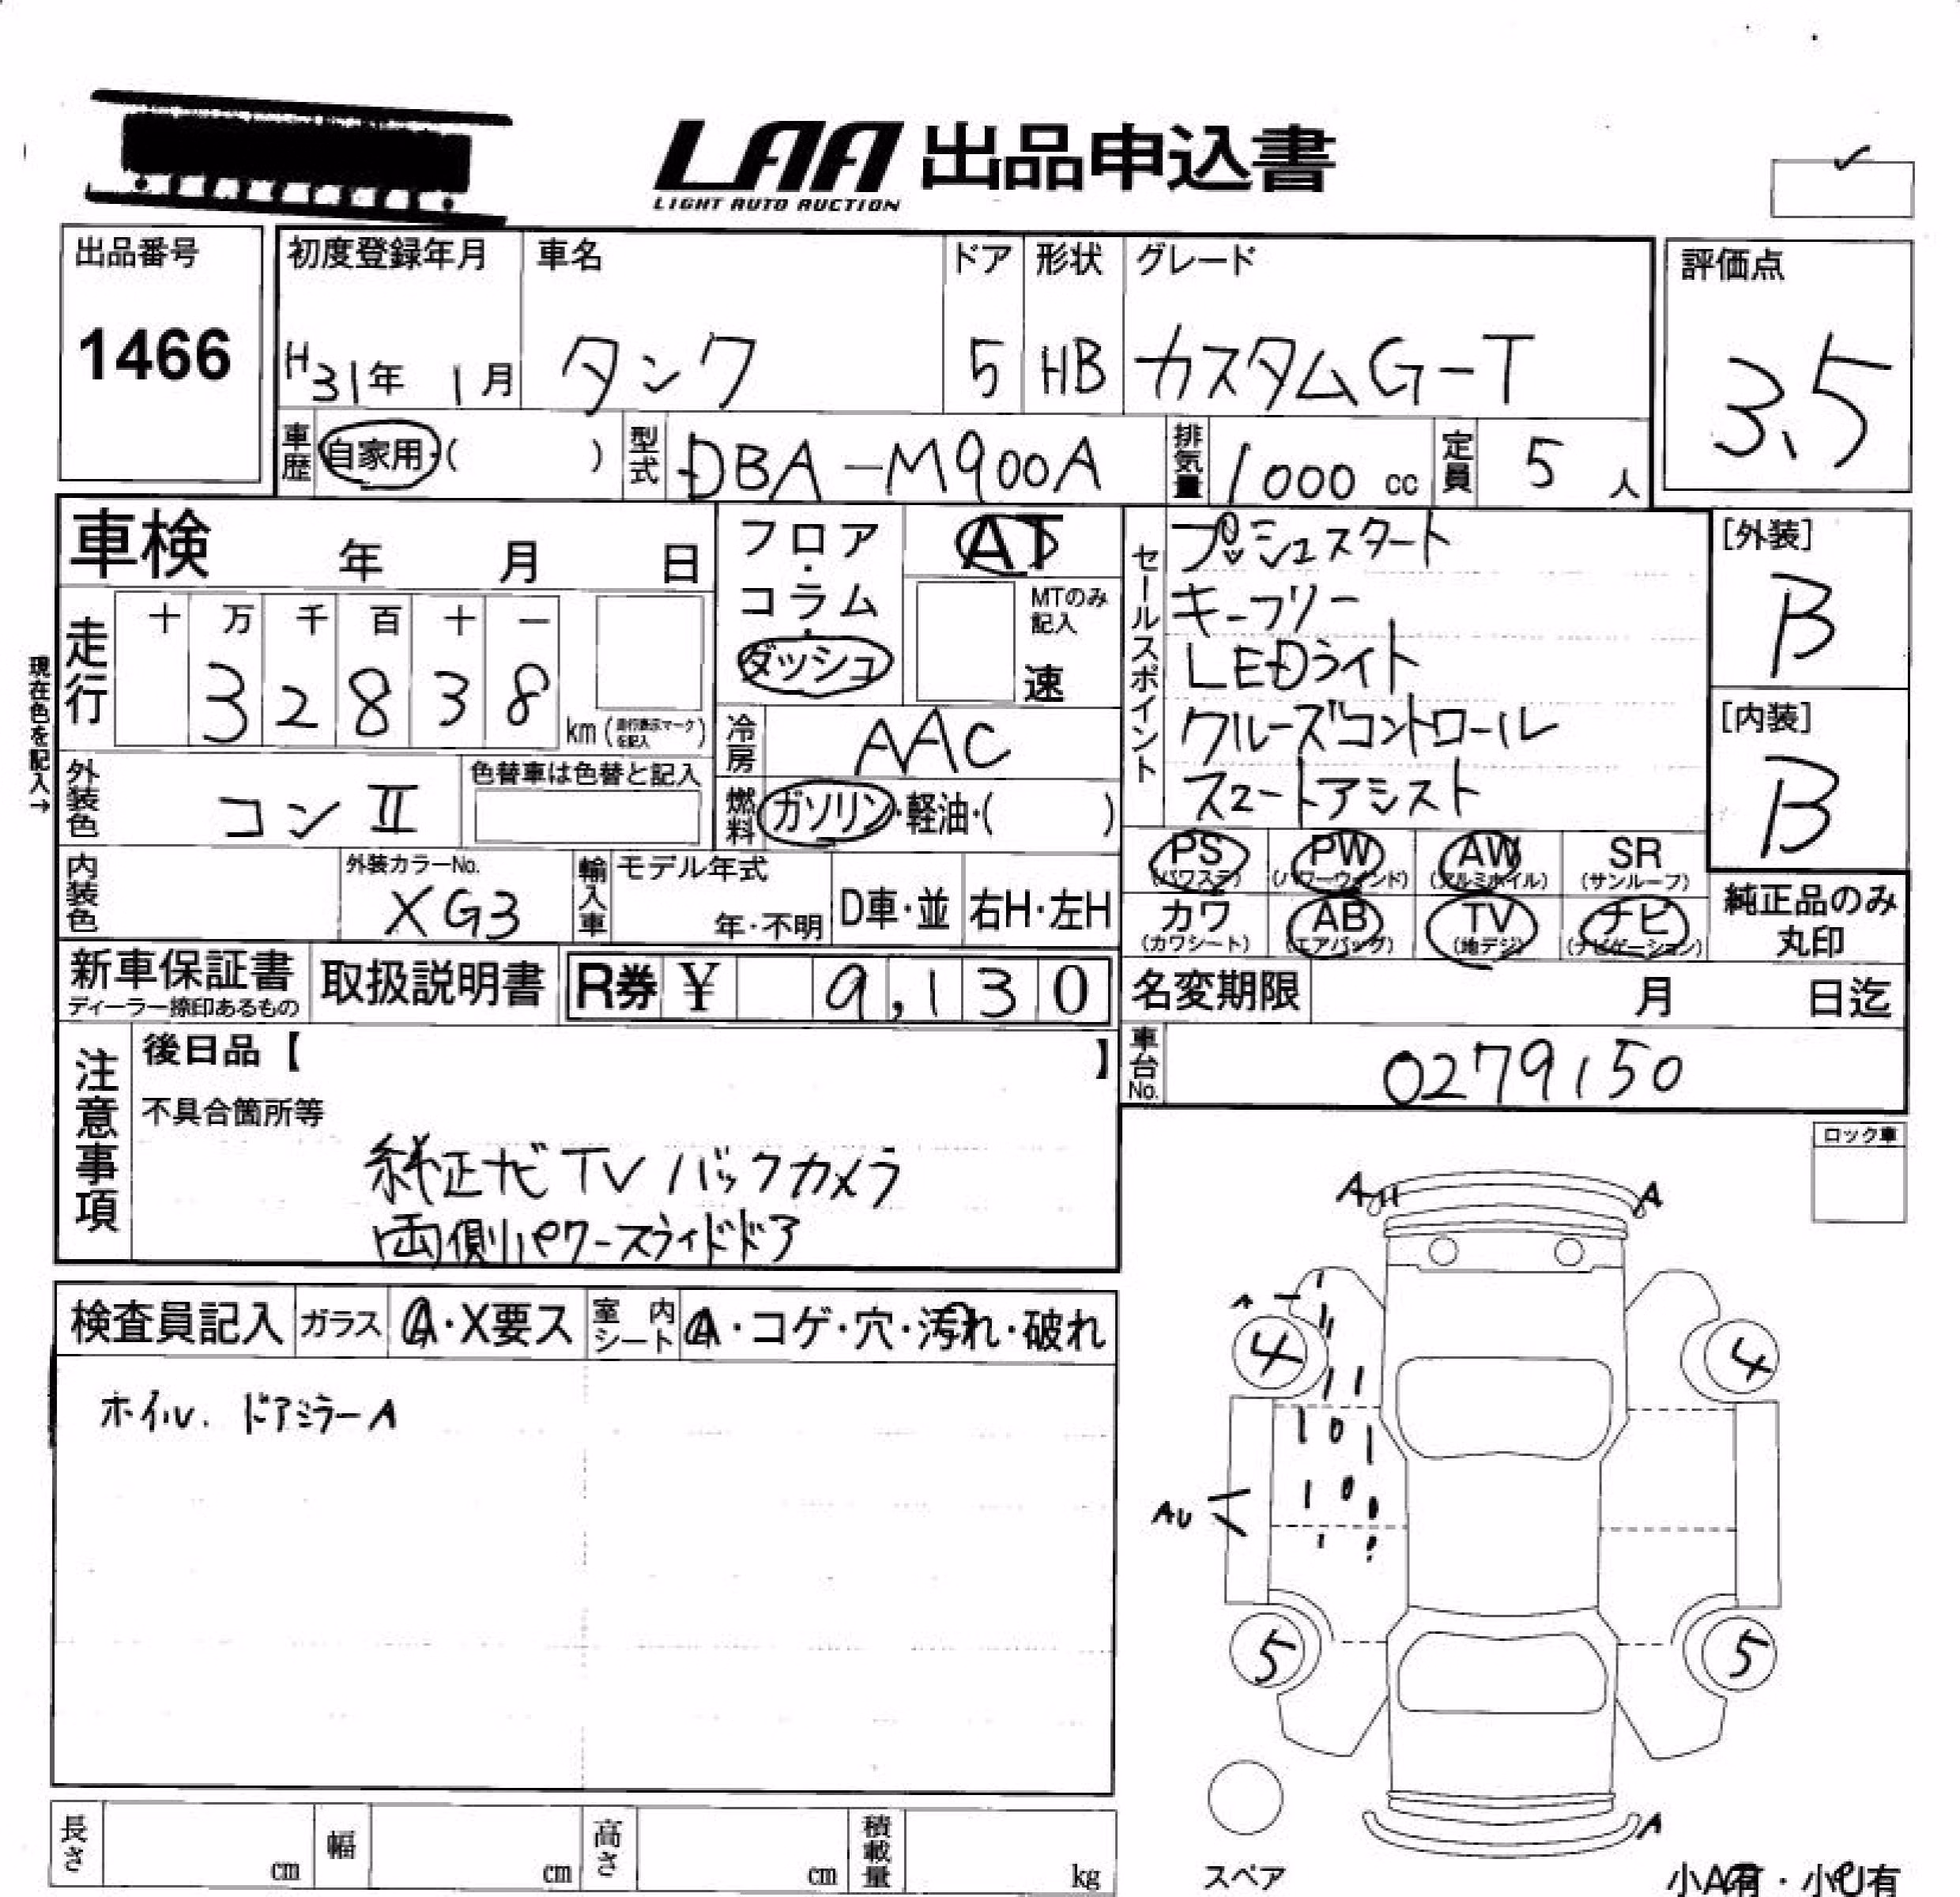 LAA 出品申込書
LIGHT AUTO AUCTION
出品番号
1466
初度登録年月
H31年 1月
車名
タンク
ドア
5
形状
HB
グレード
カスタムG-T
評価点
3.5
車歴 自家用・( )
型式 DBA-M900A
排気量 1000 cc
定員 5 人
車検 年 月 日
フロア・コラム・ダッシュ
AT
MTのみ記入
速
セールスポイント
プッシュスタート
キーフリー
LEDライト
クルーズコントロール
スマートアシスト
[外装]
B
[内装]
B
現在色を記入→
走行
十 万 千 百 十 一
3 2 8 3 8
km (走行表示マークを記入)
冷房 AAC
外装色 コン II
色替車は色替と記入
燃料 ガソリン・軽油・( )
内装色
外装カラーNo.
XG3
輸入車
モデル年式
年・不明
D車・並
右H・左H
PS (パワステ)
PW (パワーウインド)
AW (アルミホイル)
SR (サンルーフ)
カワ (カワシート)
AB (エアバッグ)
TV (地デジ)
ナビ (ナビゲーション)
純正品のみ
丸印
新車保証書
ディーラー捺印あるもの
取扱説明書
R券 ¥ 9,130
名変期限 月 日迄
車台No. 0279150
注意事項
後日品【 】
不具合箇所等
純正ナビTV バックカメラ
両側パワースライドドア
ロック車
検査員記入
ガラス A・X要ス
室内シート A・コゲ・穴・汚れ・破れ
ホイル. ドアミラーA
A
A
A
4
4
AU
5
5
A
スペア
小A有・小U有
長さ cm
幅 cm
高さ cm
積載量 kg